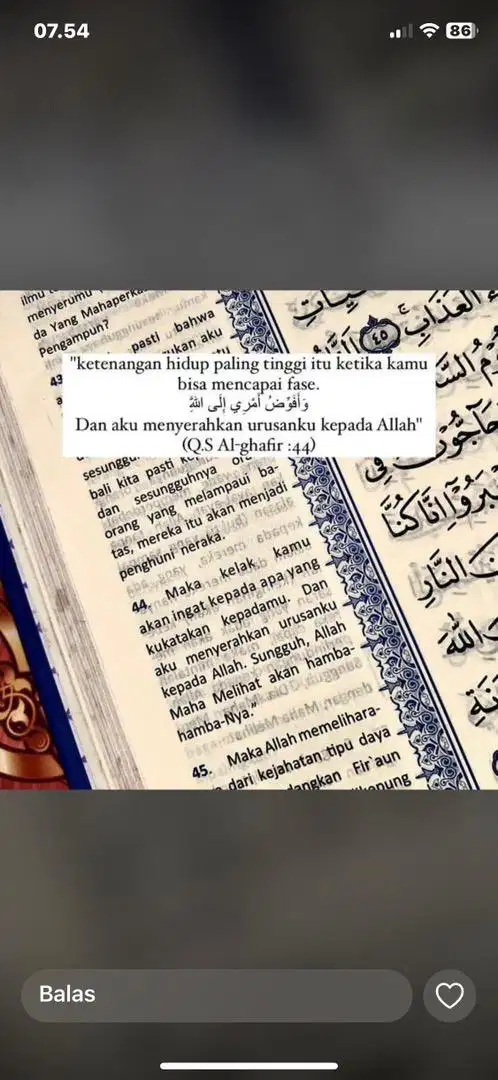 07.54
86
ilmu
menyerumu
da Yang Mahaperka
Pengampun?
43
pasti bahwa
ukan aku
"ketenangan hidup paling tinggi itu ketika kamu
bisa mencapai fase.
وَأُفَوِّضُ أَمْرِي إِلَى اللَّهِ
Dan aku menyerahkan urusanku kepada Allah"
(Q.S Al-ghafir :44)
sesunggu
bali kita pasti
dan sesungguhnya
orang yang melampaui ba-
tas, mereka itu akan menjadi
penghuni neraka.
44. Maka kelak kamu
akan ingat kepada apa yang
kukatakan kepadamu. Dan
aku menyerahkan urusanku
kepada Allah. Sungguh, Allah
Maha Melihat akan hamba-
hamba-Nya."
45. Maka Allah memelihara-
dari kejahatan tipu daya
dangkan Fir`aun
kepung
الْعَذَابِ ٤٥
النَّارِ
اللَّهَ
Balas